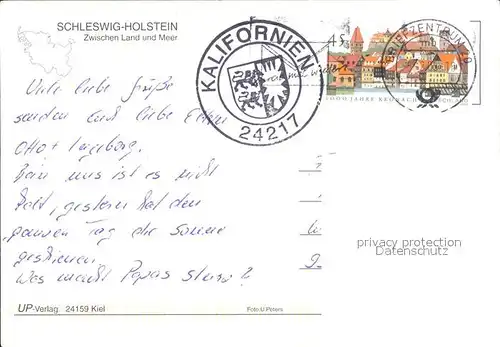 SCHLESWIG-HOLSTEIN
Zwischen Land und Meer
KALIFORNIEN
24217
BRIEFZENTRUM
1000 JAHRE
Viele liebe Grüße
senden Euch liebe Eltern
Otto + Ingeborg.
Bei uns ist es nicht
kalt, gestern hat den
ganzen Tag die Sonne
geschienen.
Was macht Papas
privacy protection
Datenschutz
UP-Verlag 24159 Kiel
Foto: U. Peters